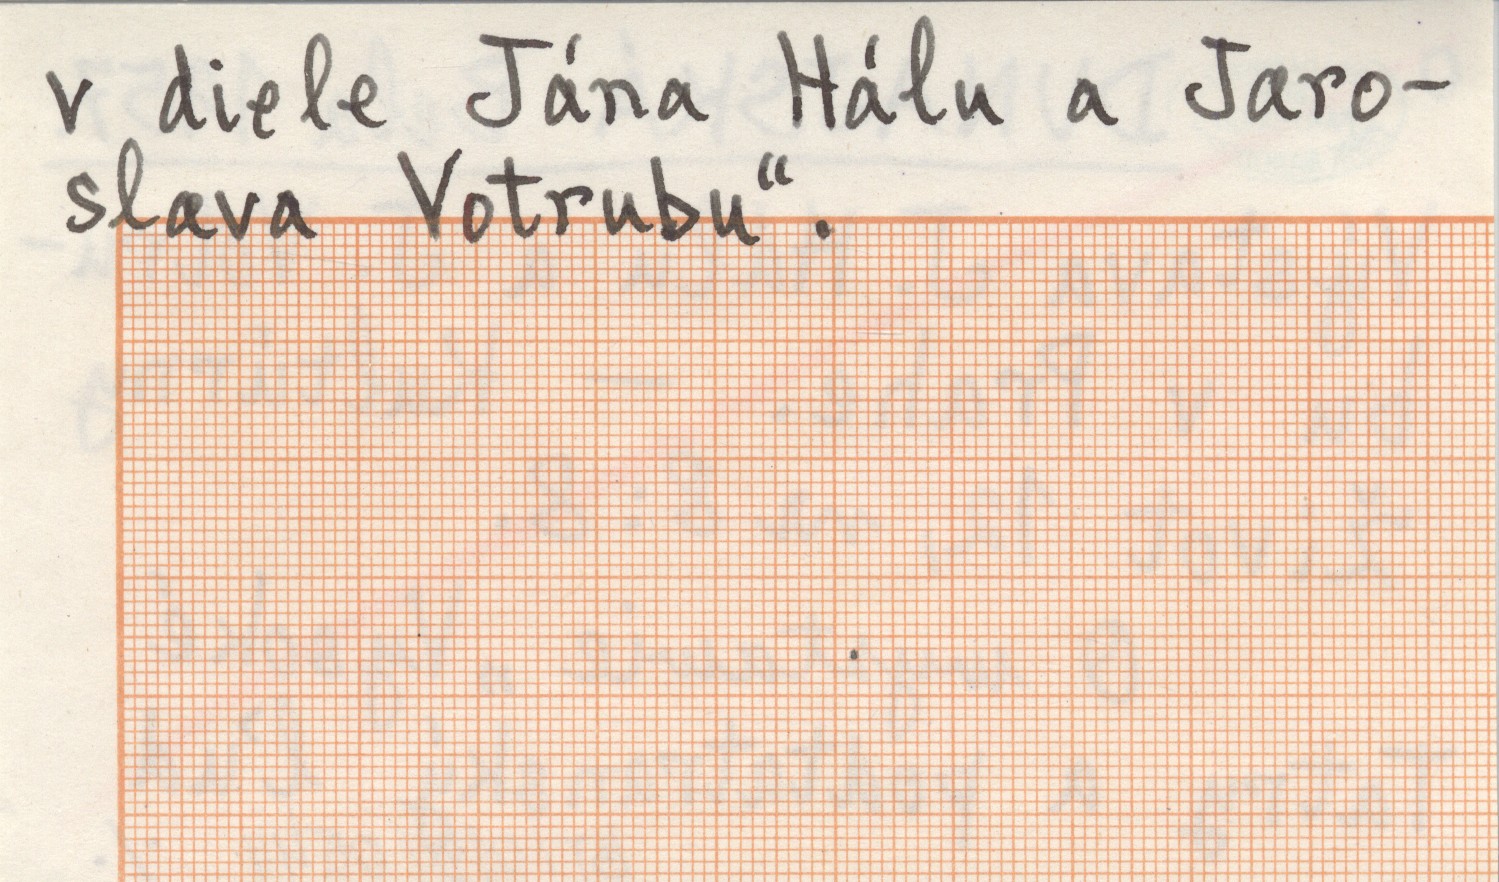 v diele Jána Hálu a Jaro-
slava Votrubu“.